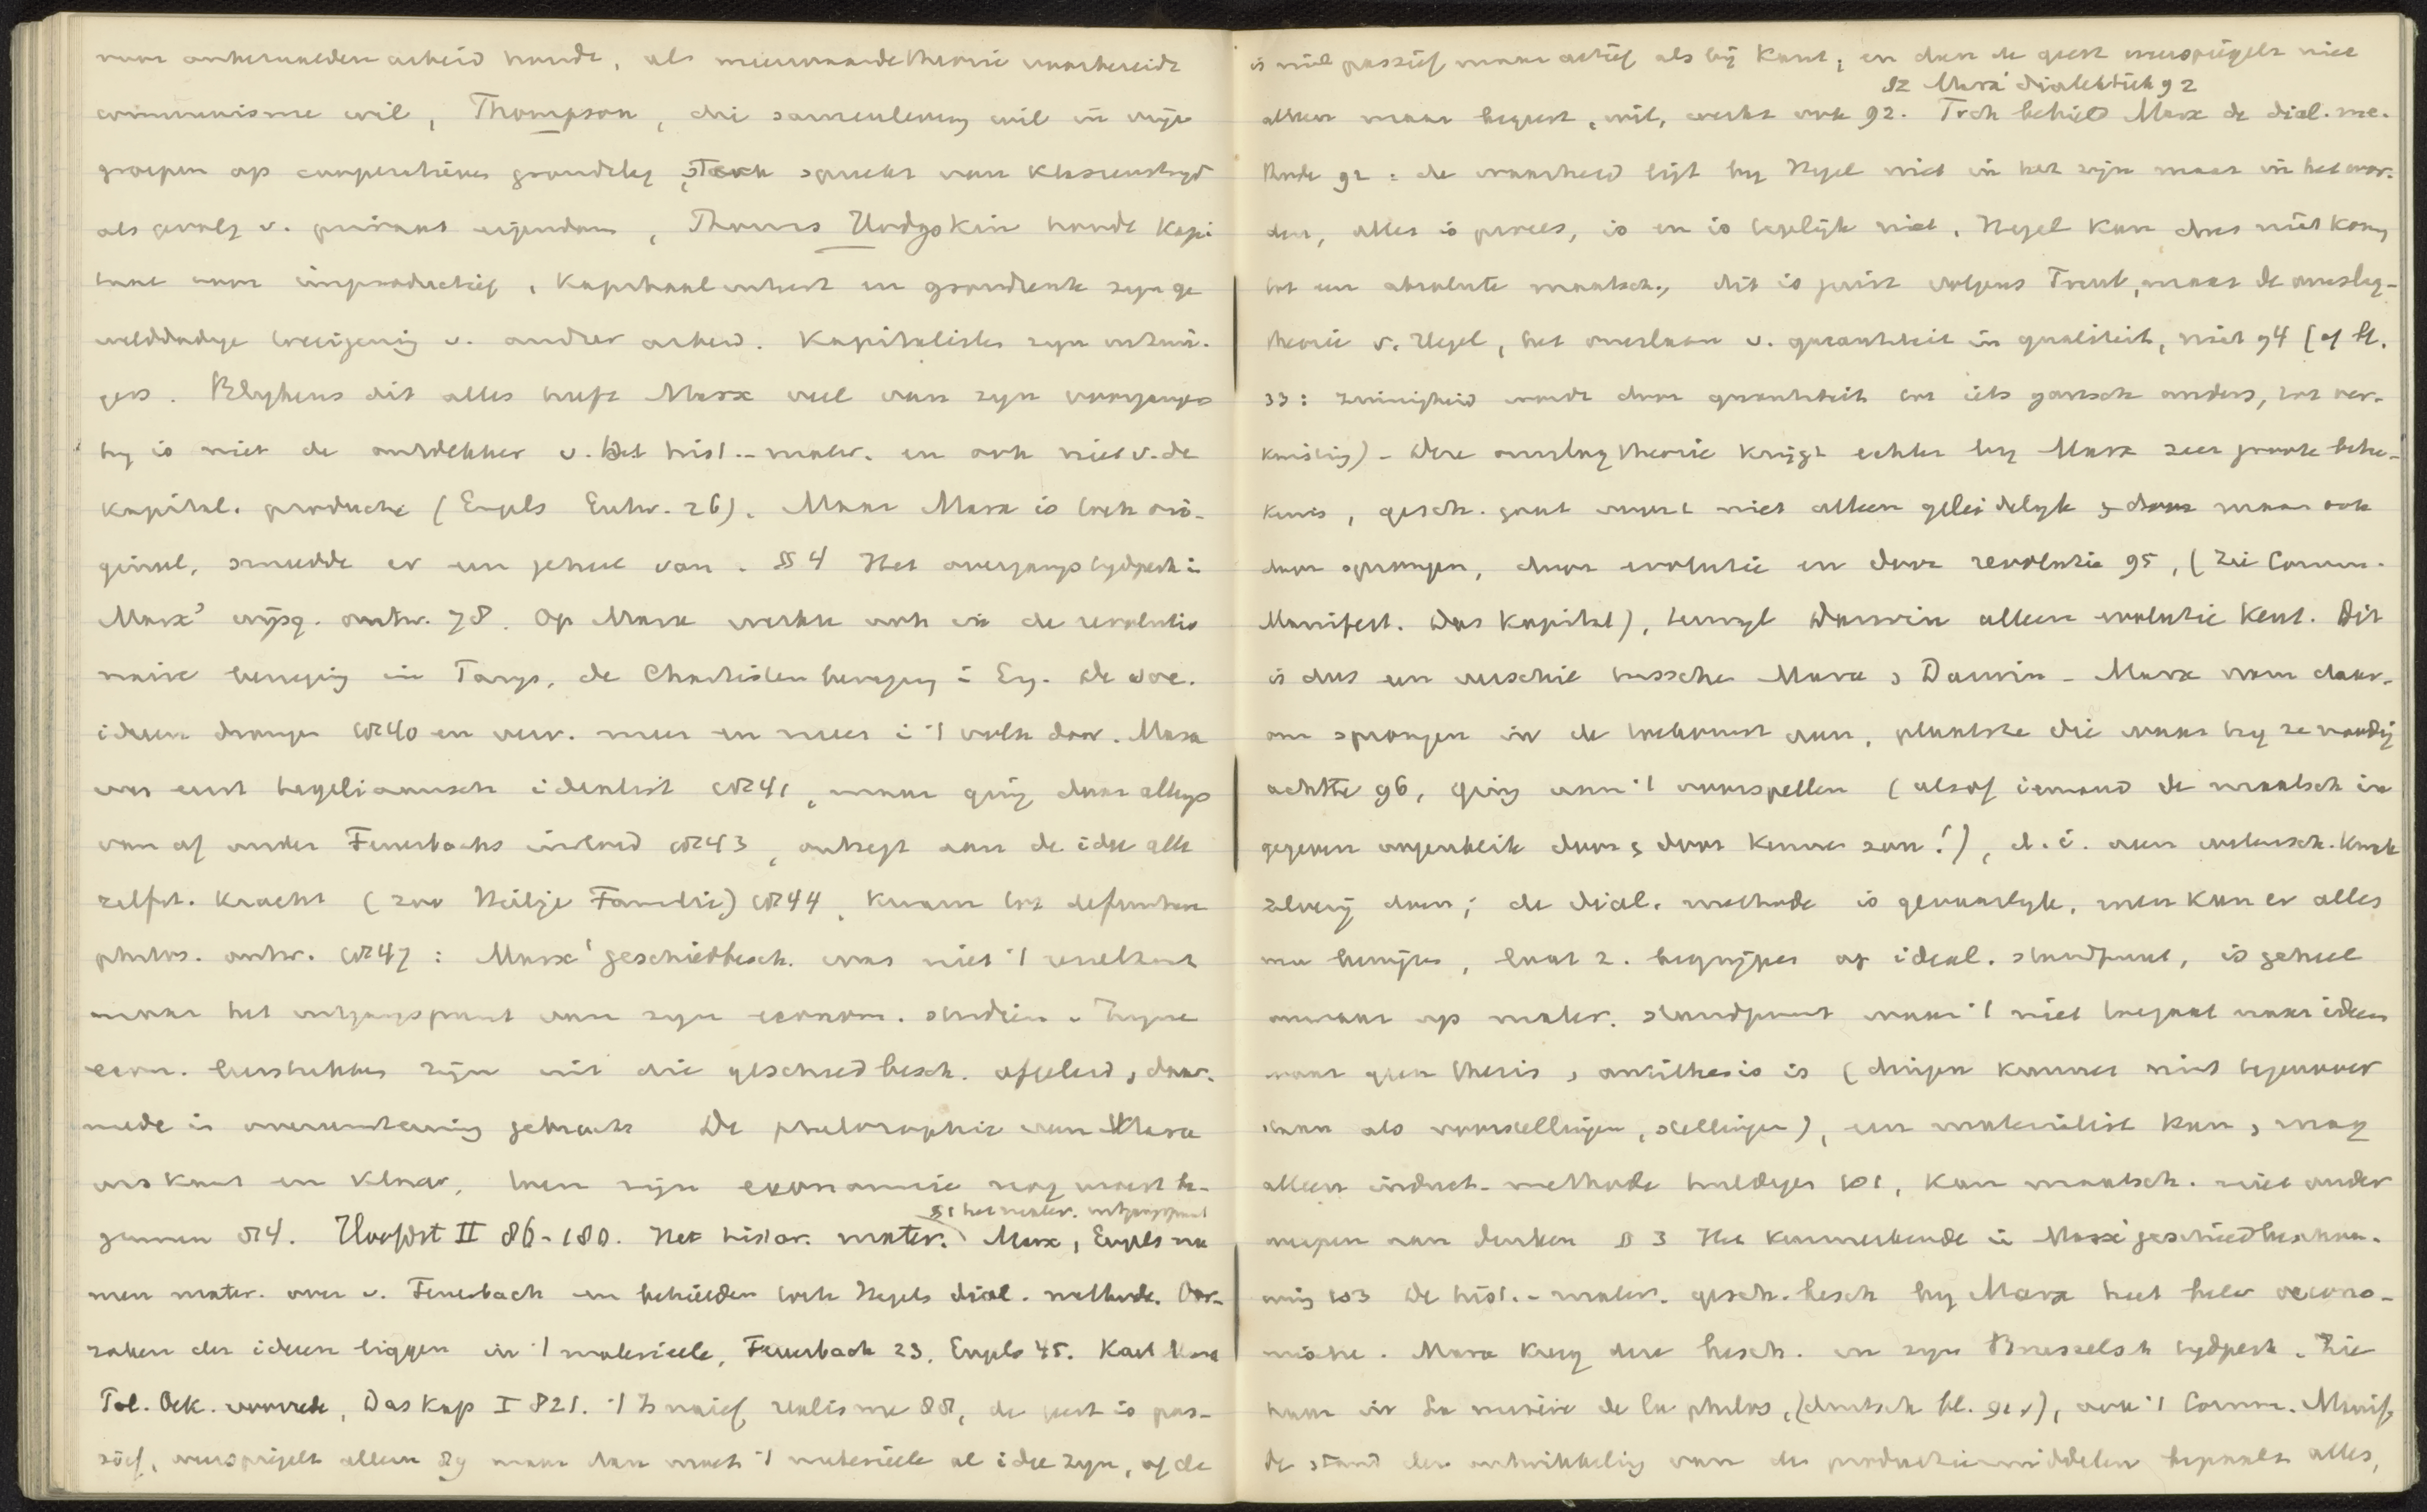 voor onbetaalden arbeid houdt, als meerwaardetheorie voorbereidt
communisme wil, Thompson, die samenleving wil in vrije
groepen op coöperatieven grondslag, spreekt van klassenstrijd
als gevolg v. privaat eigendom, Thomas Hodgskin houdt kapi
taal voor improductief, kapitaalwinst en grondrente zijn ge
welddadige toeëigening v. ander arbeid. Kapitalisten zijn
Blijkens dit alles heeft Marx veel van zijn voorgangers
hij is niet de ontdekker v. het hist.-mater. en ook niet v. de
kapital. productie (Engels Entw. 26). Maar Marx is toch ori-
gineel, smeedde er een geheel van. §§ 4 Het overgangstijdperk in
Marx' wijsg. ontw. 78. Op Marx werkte ook in de revolutio
naire beweging in Parijs, de Chartisten beweging i Eng. De soc.
ideeen drongen 40 en verv. meer en meer i 't volk door. Marx
was eerst hegeliaansch idealist 41, maar ging daar allengs
van af onder Feuerbachs invloed 43, ontzegt aan de idee alle
zelfst. kracht (zoo Heilige Familie) 44, kwam tot definitieve
philos. ontw. 47: Marx' geschiedbesch. was niet 't resultaat
maar het uitgangspunt van zijn econom. studiën. Zijne
econ. leerstukken zijn uit die geschiedbesch. afgeleid, daar-
mede in overeenstemming gebracht De philosophie van Marx
was kant en klaar, toen zijn economie nog moest be-
§1 het mater. uitgangspunt
ginnen 84. Hoofdst II 86-180. Het histor. mater. Marx, Engels na
men mater. over v. Feuerbach en behielden toch Hegels dial. methode. Oor-
zaken der ideeen liggen in 't materieele, Feuerbach 23, Engels 45. Karl Marx
Pol. Oek. voorrede, Das Kap I 821. 't Is naief realisme 88, de geest is pas-
sief, weerspiegelt alleen 89 maar dan moet 't materieele al idee zijn, of de
is niet passief maar actief als bij Kant; en dan de geest weerspiegelt niet
§2 Marx' dialektiek 92
alleen maar begeert, wil, werkt ook 92. Toch behield Marx de dial. me-
thode 92: de waarheid ligt bij Hegel niet in het zijn maar in het wor-
den, alles is proces, is en is tegelijk niet. Hegel kan dus niet komen
tot een absolute maatsch., dit is juist volgens Treub, maar de omslag-
theorie v. Hegel, het omslaan v. quantiteit in qualiteit, niet 94 (of bl.
33: zuinigheid wordt door quantiteit tot iets gansch anders, tot ver-
kwisting) - Deze omslagtheorie krijgt echter bij Marx zeer groote betee-
kenis, gesch. gaat voort niet alleen geleidelijk maar ook
door sprongen, door evolutie en door revolutie 95, (zie Comm.
Manifest. Das Kapital), terwijl Darwin alleen evolutie kent. Dit
is dus een verschil tusschen Marx & Darwin - Marx nam daar-
om sprongen in de toekomst aan, plaatste die waar hij ze noodig
achtte 96, ging aan 't voorspellen (alsof iemand de maatsch in
gegeven oogenblik door & door kennen kon!), d.i. aan wetensch. kwak
zalverij doen; de dial. methode is gevaarlijk, men kan er alles
mee bewijzen, laat z. begrijpen op ideal. standpunt, is geheel
onwaar op mater. standpunt waar 't niet toegaat naar ideen
waar geen thesis & antithesis is (dingen kunnen niet tegenover
staan als voorstellingen, stellingen), een materialist kan & mag
alleen induct. methode huldigen 101, kan maatsch. niet onder
werpen aan denken § 3 Het kenmerkende in Marx' geschiedbeschou-
wing 103 De hist.-mater. gesch. besch bij Marx heet beter oecono-
mische. Marx kreeg deze besch. in zijn Brusselsch tijdperk. Zie
haar in La misère de la philos, (duitsch bl. 91 v), ook 't Comm. Manif.,
De stand der ontwikkeling van de productiemiddelen bepaalt alles,